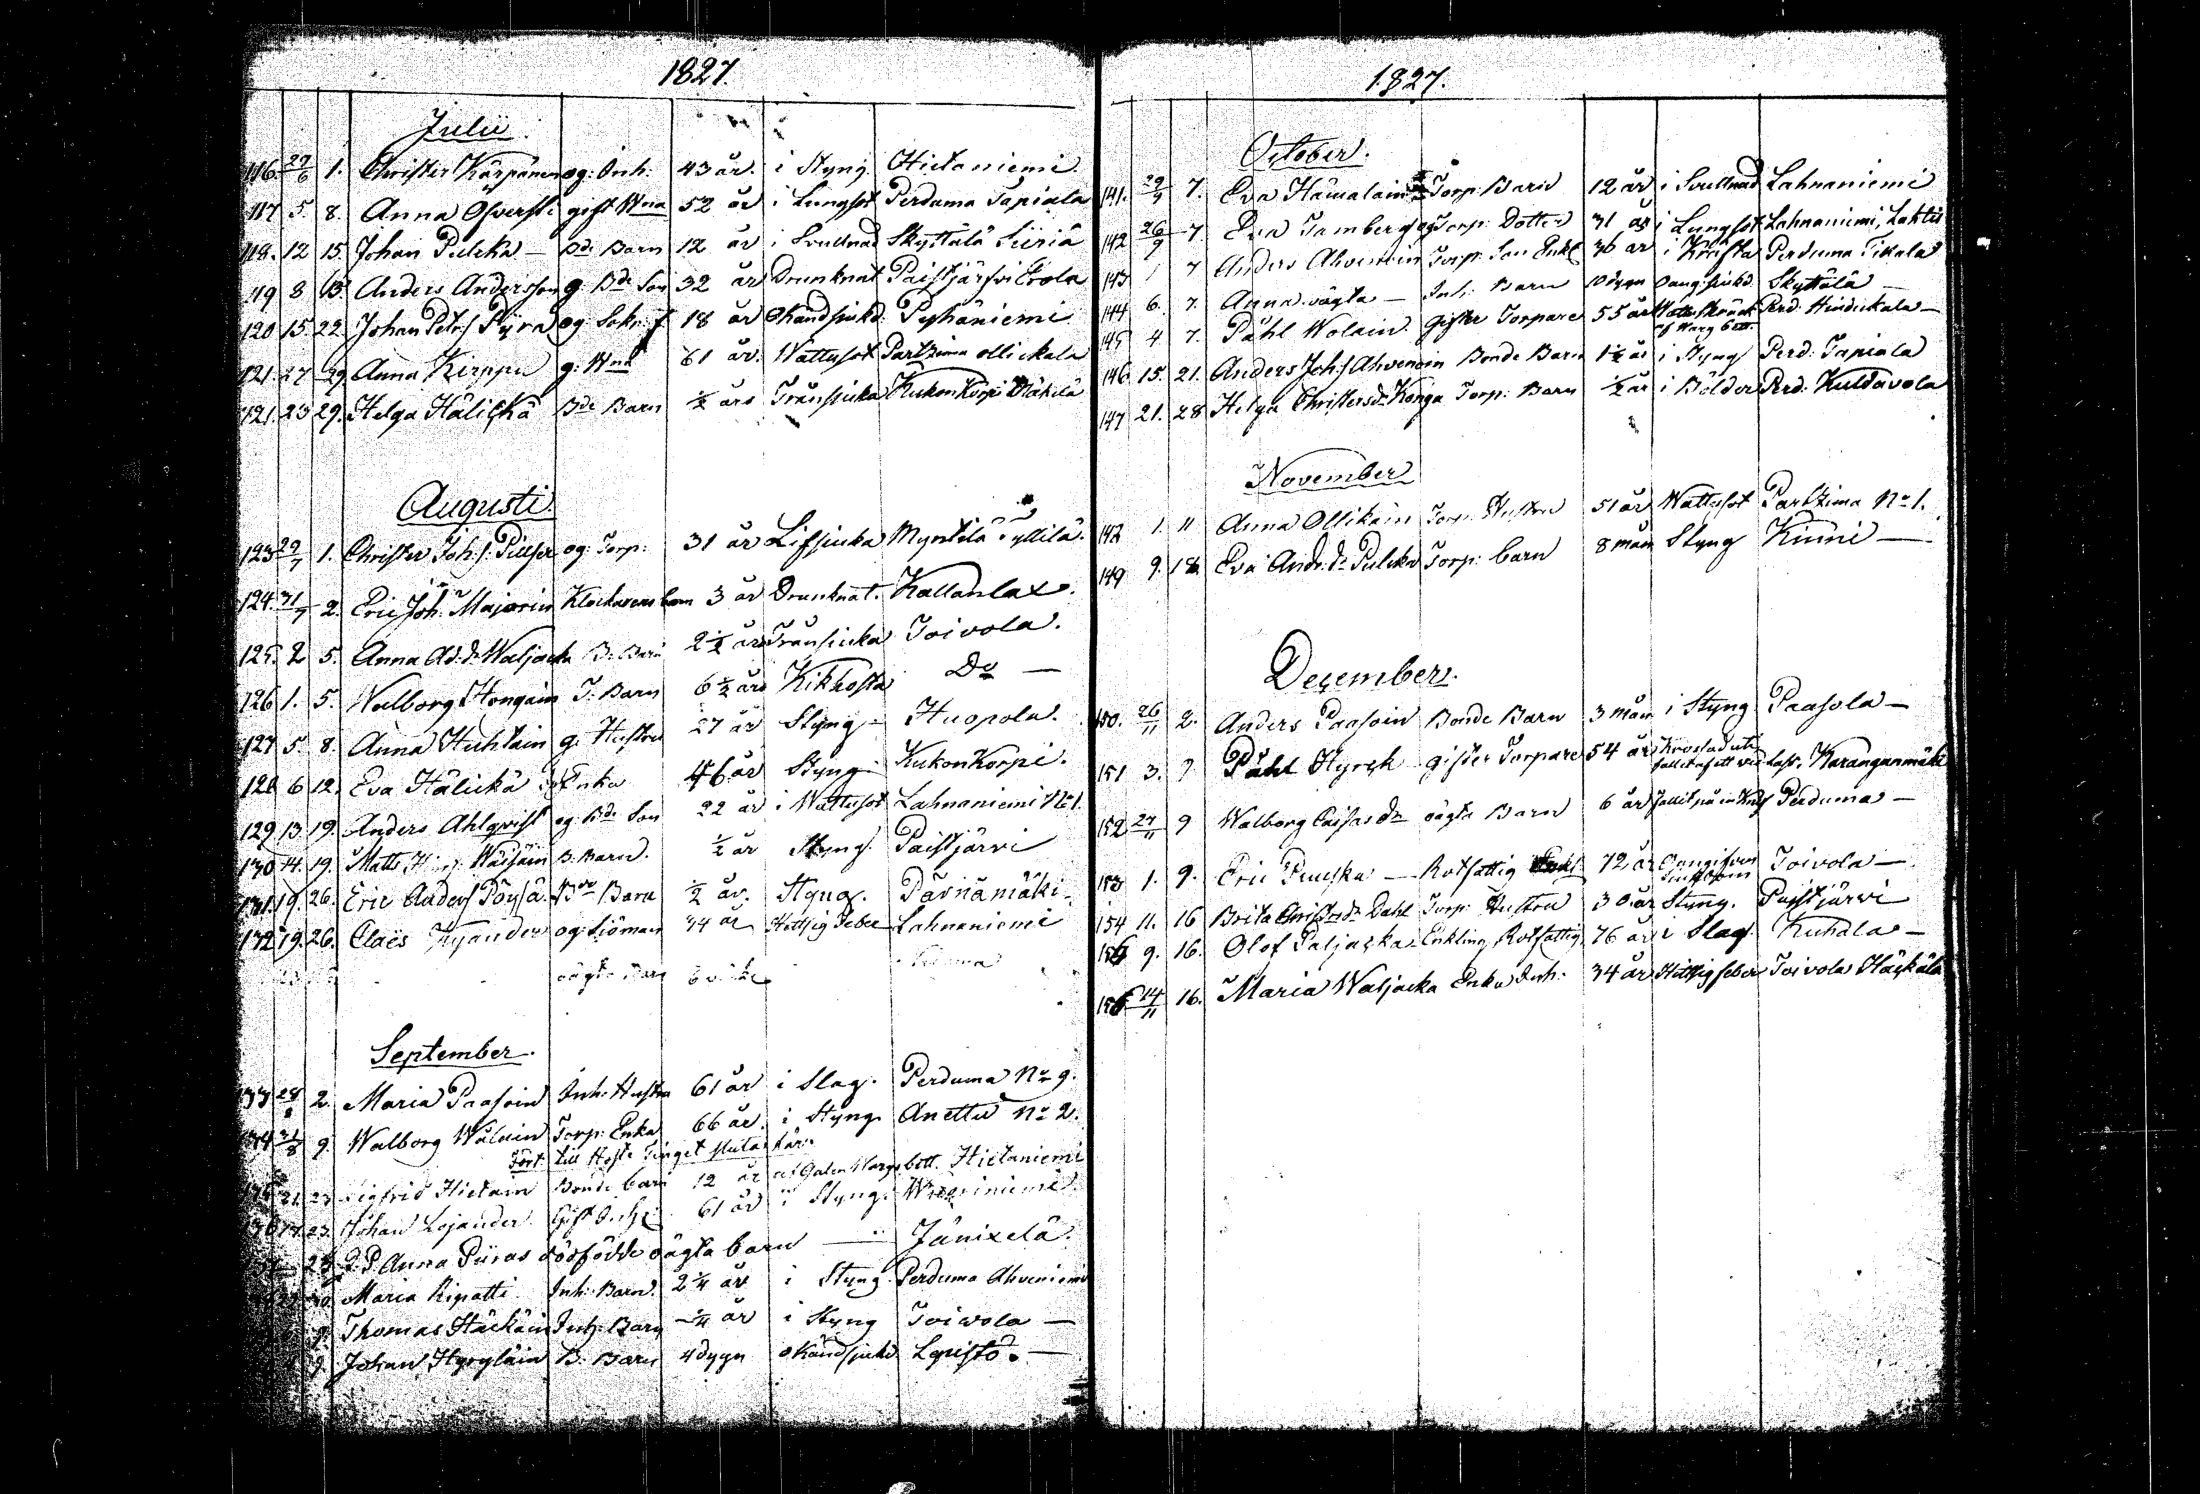 1827.
Julii
116. 27/6 1. Christer Kärpänen og: Inh. 43 år. i Styng Hietaniemi
117 5. 8. Anna Ofverst: gift Wna 52 år i Lungsot Perduma Tapiala
118. 12 15. Johan Pulcka — Bde Barn 12 år i Svullnad Skyttälä Siiriä
119 8 15. Anders Andersson g. Bde Son 32 år Drunknat Paistjärfvi Erola
120 15. 22. Johan Petr: Pyrä og Sokn: 18 år Okänd sjukd. Pyhäniemi
121. 27 29. Anna Kirppu g: Wna 61 år. Wattusot Partzima ollickala
121. 23 29. Helga Hälickä Bde Barn ½ års Trånsjuka Kukonkorpi Mäkelä
Augusti.
123 29/7 1. Christer Joh: s: og: Torp: 31 år Lifsjuka Myntilä Tyllilä.
124. 31/7 2. Eric Joh: Majorin Klockarens barn 3 år Drunknat. Kallanlax.
125. 2 5. Anna Ad. dr Waljacka B: Barn 2½ års Trånsjuka Toivola.
126 1. 5. Walborg Hongain T: Barn 6½ års Kikhosta Do —
127 5. 8. Anna Huhtain g: Hustru 27 år Styng — Huopola.
128 6 12. Eva Hälickä Enka 46 år Styng Kukonkorpi.
129 13 19. Anders Ahlqvist og Bde Son 22 år i Wattusot Lahnaniemi No 1.
130 14. 19. Matts Wäisäin B: Barn. ½ år Styng. Paistjärvi
131. 19. 26. Eric Anders Pöysä. Bde Barn ½ år. Styng. Pärnämäki.
132 19. 26. Claës Kyander og: Sjöman 34 år Hettsig Feber Lahnaniemi
oägta Barn
September.
133 28/8 2. Maria Paasoin Inh: Hustru 61 år i Slag. Perduma No 9.
134 31/8 9. Walborg Wälain Torp: Enka 66 år. i Styng. Anettu No 2.
Fört till Höste Tinget slutas här.
135 21 23 Sigfrid Hietain Bonde barn 12 år af Galen Wargs bett. Hietaniemi
136 17. 23. Johan Lojander Gift Inh: 61 år i Styng.
23 Anna Piiras dödfödde oägta barn — Jänixelä.
30 Maria Ripatti Inh: Barn. 2¼ år i Styng Perduma Ahveniemi
Thomas Häckäin Inh: Barn ¼ år i Styng Toivola —
Johan Hyryläin B: Barn 4 dygn okänd sjukd. Lqvistö. —
1827.
October.
141. 29/9 7. Eva Hämalain Torp: Barn 12 år i Svullnad Lahnaniemi
142 26/9 7 Eva Tamberg og Torp: Dotter 31 år i Lungsot Lahnaniemi, Lahtis
143 1 7 Anders Ahvenain Torp: Son Enkl 36 år i Kräfta Perduma Tikala
144 6. 7. Anna oägta — Inh: Barn 10 dygn Oang: sjukd. Skyttälä —
145 4 7. Påhl Wolain. gifter Torpare 55 år Wattuskräck af Warg bett. Perd. Heickala —
146 15. 21. Anders Joh: s: Ahvenain Bonde Barn 1½ år i Styng Perd: Tapiala
147 21. 28 Helga Christersdr Konga Torp: Barn ½ år i Bölder Perd. Kuldavola
November
142 1. 11 Anna Ollikain Torp: Hustru 51 år Wattusot Partzima No 1.
149 9. 18. Eva Andr: dr Pulcka Torp: barn 8 mån Styng Kinni —
December.
150. 26/11 2. Anders Paasoin Bonde Barn 3 mån i Styng Paasola —
151 3. 9 Påhl Hyrck gifter Torpare 54 år Karangarmäki
152 27/11 9 Walborg Caisasdr oägta Barn 6 år Perduma —
153 1. 9. Eric — Rotfattig Enkl 72 år Oangifven Sjukdom Toivola —
154 11. 16 Brita Christersdr Dahl Torp: Hustru 30 år Styng. Paistjärvi
155 9. 16. Olof Paljacka Enkling Rotfattig 76 år i Slag. Kuhala —
156 14/11 16. Maria Waljacka Enka Inh: 34 år Hettsig feber Toivola Häckälä